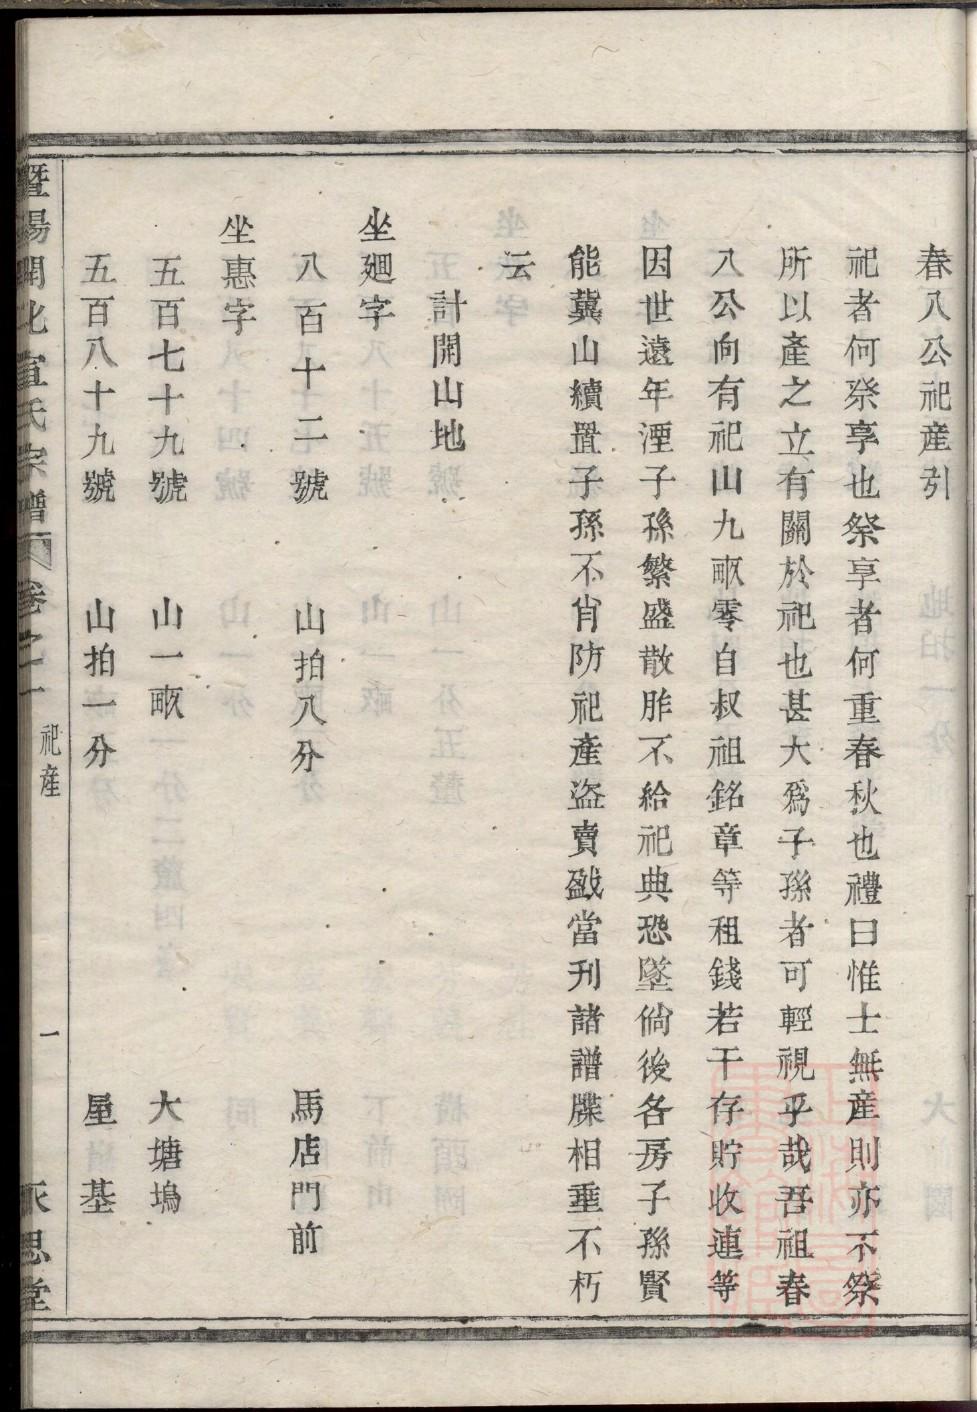 春八公祀産引
祀者何祭享也祭享者何重春秋也禮曰惟士無産則亦不祭
所以產之立有關於祀也甚大爲子孫者可輕視乎哉吾祖春
八公向有祀山九畝零自叔祖銘章等租錢若干存貯收連等
因世遠年湮子孫繁盛散胙不給祀典恐墜倘後各房子孫賢
能冀山續置子孫不肖防祀產盗賣敚當刋諸譜牒相垂不朽
云
計開山地
坐廽字
八百十二號 山拍八分 馬店門前
坐惠字
五百七十九號 山一畝 大塘塢
五百八十九號 山拍一分 屋基
暨陽開化宣氏宗譜 卷之一 祀産 一 永思堂